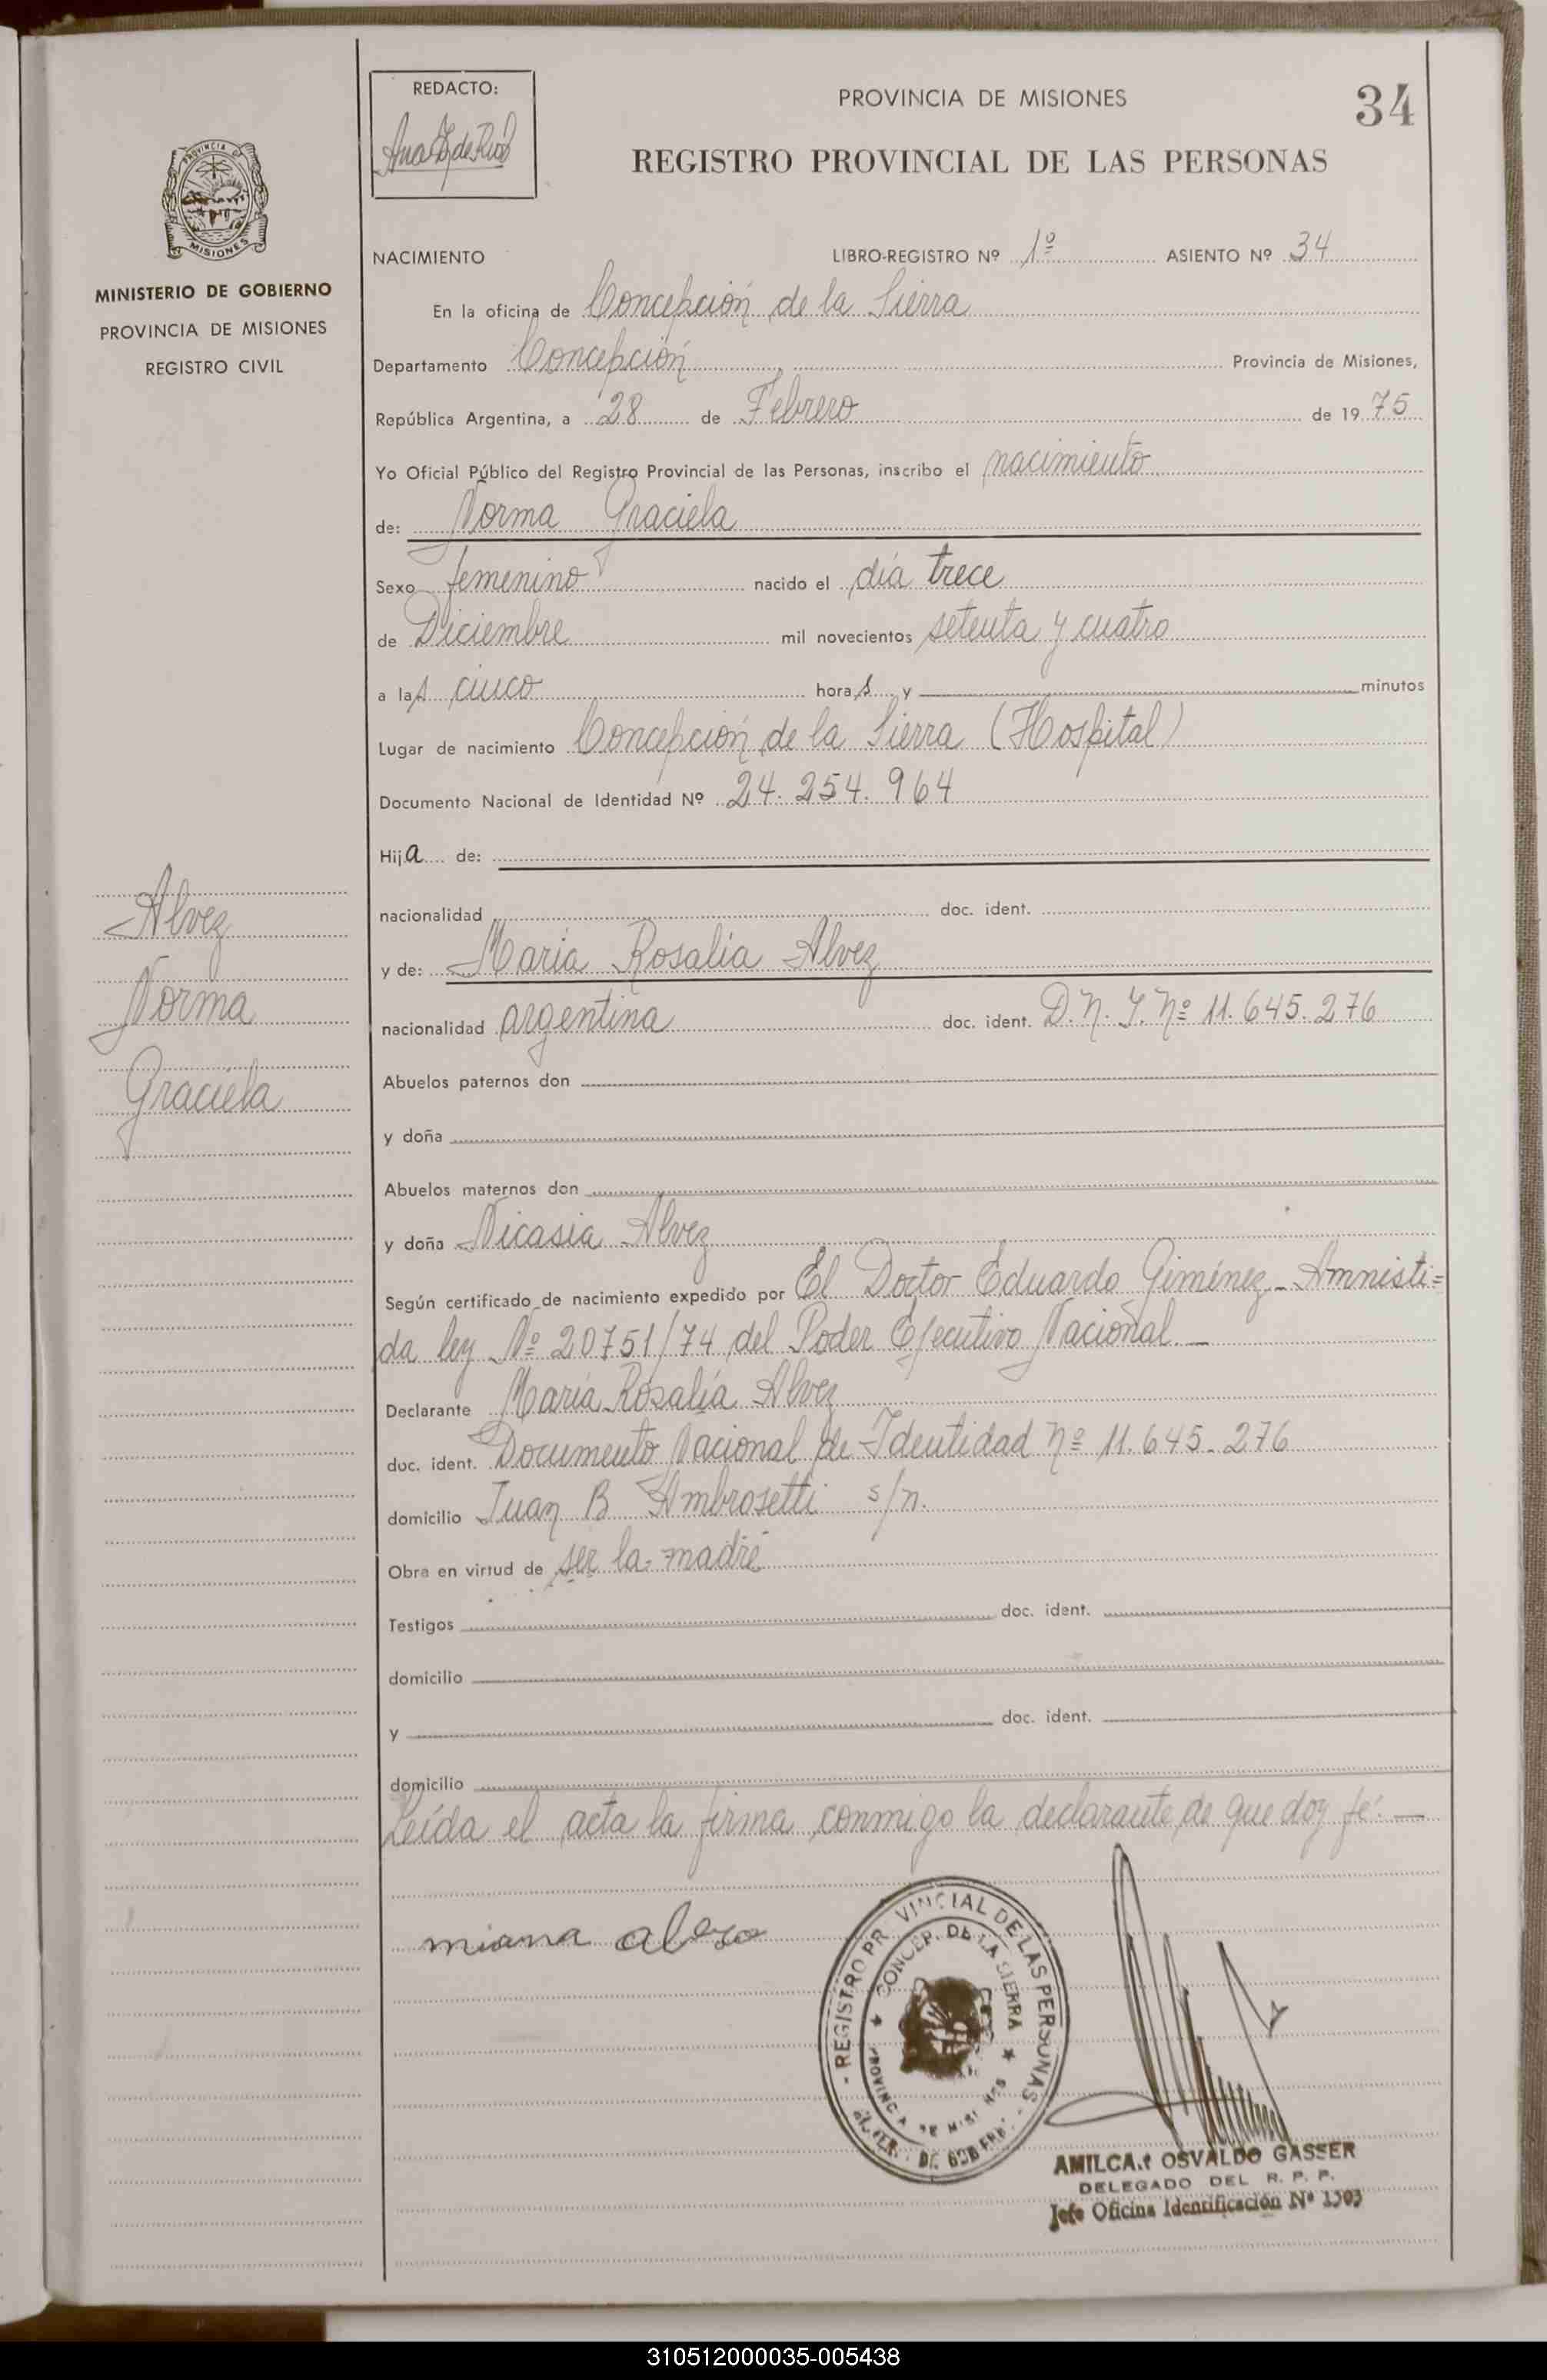 REDACTO:
PROVINCIA DE MISIONES
34
REGISTRO PROVINCIAL DE LAS PERSONAS
PROVINCIA D
MISIONES
MINISTERIO DE GOBIERNO
PROVINCIA DE MISIONES
REGISTRO CIVIL
NACIMIENTO LIBRO-REGISTRO Nº 1º ASIENTO Nº 34
En la oficina de Concepción de la Sierra
Departamento Concepción Provincia de Misiones,
República Argentina, a 28 de Febrero de 1975
Yo Oficial Público del Registro Provincial de las Personas, inscribo el nacimiento
de: Norma Graciela
Sexo femenino nacido el día trece
de Diciembre mil novecientos setenta y cuatro
a las cinco horas y minutos
Lugar de nacimiento Concepción de la Sierra (Hospital)
Documento Nacional de Identidad Nº 24.254.964
Hija de:
nacionalidad doc. ident.
y de: María Rosalía Alvez
nacionalidad argentina doc. ident. D.N.I. Nº 11.645.276
Abuelos paternos don
y doña
Abuelos maternos don
y doña Nicasia Alvez
Según certificado de nacimiento expedido por El Doctor Eduardo Giménez - Amnisti=
da ley Nº 20751/74 del Poder Ejecutivo Nacional.-
Declarante María Rosalía Alvez
doc. ident. Documento Nacional de Identidad Nº 11.645.276
domicilio Juan B Ambrosetti s/n.
Obra en virtud de ser la madre
Testigos doc. ident.
domicilio
y doc. ident.
domicilio
Leída el acta la firma conmigo la declarante de que doy fé.-
Alvez
Norma
Graciela
REGISTRO PR VINCIAL DE LAS PERSONAS
CONCEP. DE LA SIERRA
AMILCAR OSVALDO GASSER
DELEGADO DEL R. P. P.
Jefe Oficina Identificación Nº 1303
310512000035-005438